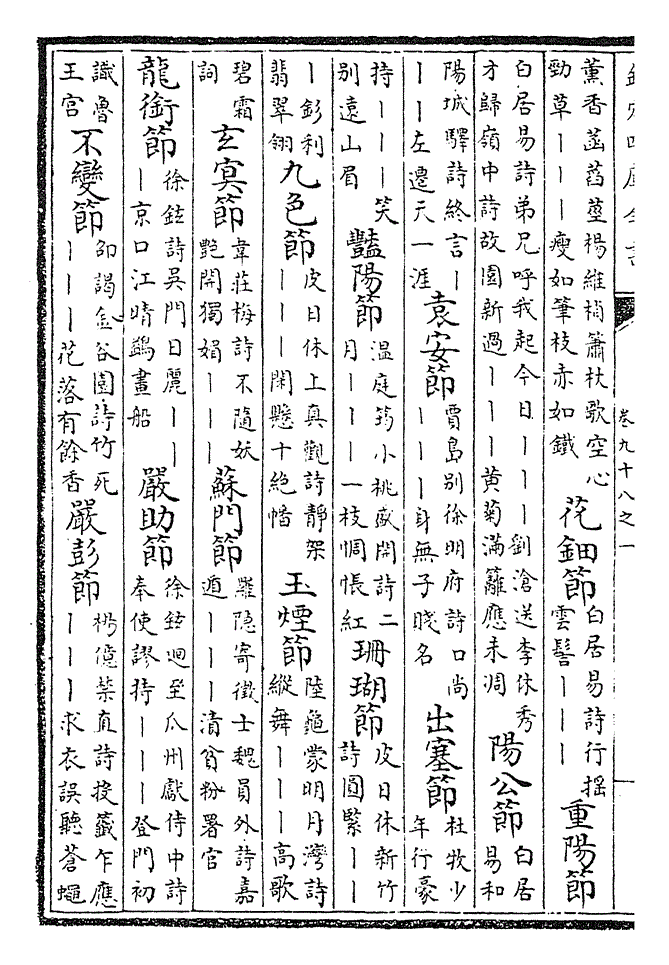 欽定四庫全書
卷九十八之一
薰香菡萏莖楊維楨簫杖歌空心
勁草｜｜｜瘦如筆枝赤如鐵
花鈿節
白居易詩行搖
雲髻｜｜｜
重陽節
白居易詩弟兄呼我起今日｜｜｜劉滄送李休秀
才歸嶺中詩故園新過｜｜｜黄菊滿籬應未凋
陽公節
白居
易和
陽城驛詩終言｜
｜｜左遷天一涯
袁安節
賈島別徐明府詩口尚
｜｜｜身無子賤名
出塞節
杜牧少
年行豪
持｜｜｜笑
別遠山眉
豔陽節
溫庭筠小桃盛開詩二
月｜｜｜一枝惆悵紅
珊瑚節
皮日休新竹
詩圓緊｜｜
｜釤利
翡翠翎
九色節
皮日休上真觀詩靜架
｜｜｜閑懸十絶幡
玉煙節
陸龜蒙明月灣詩
縱舞｜｜｜高歌
碧霜
詞
玄冥節
韋莊梅詩不隨妖
艷開獨媚｜｜｜
蘇門節
羅隠寄徵士魏員外詩嘉
遁｜｜｜清貧粉署官
龍銜節
徐鉉詩吳門日麗｜｜
｜京口江晴鷁畫船
嚴助節
徐鉉迴至瓜州獻侍中詩
奉使謬持｜｜｜登門初
識魯
王宫
不變節
邵謁金谷園詩竹死
｜｜｜花落有餘香
嚴彭節
楊億禁直詩投籤乍應
｜｜｜求衣誤聽蒼蠅